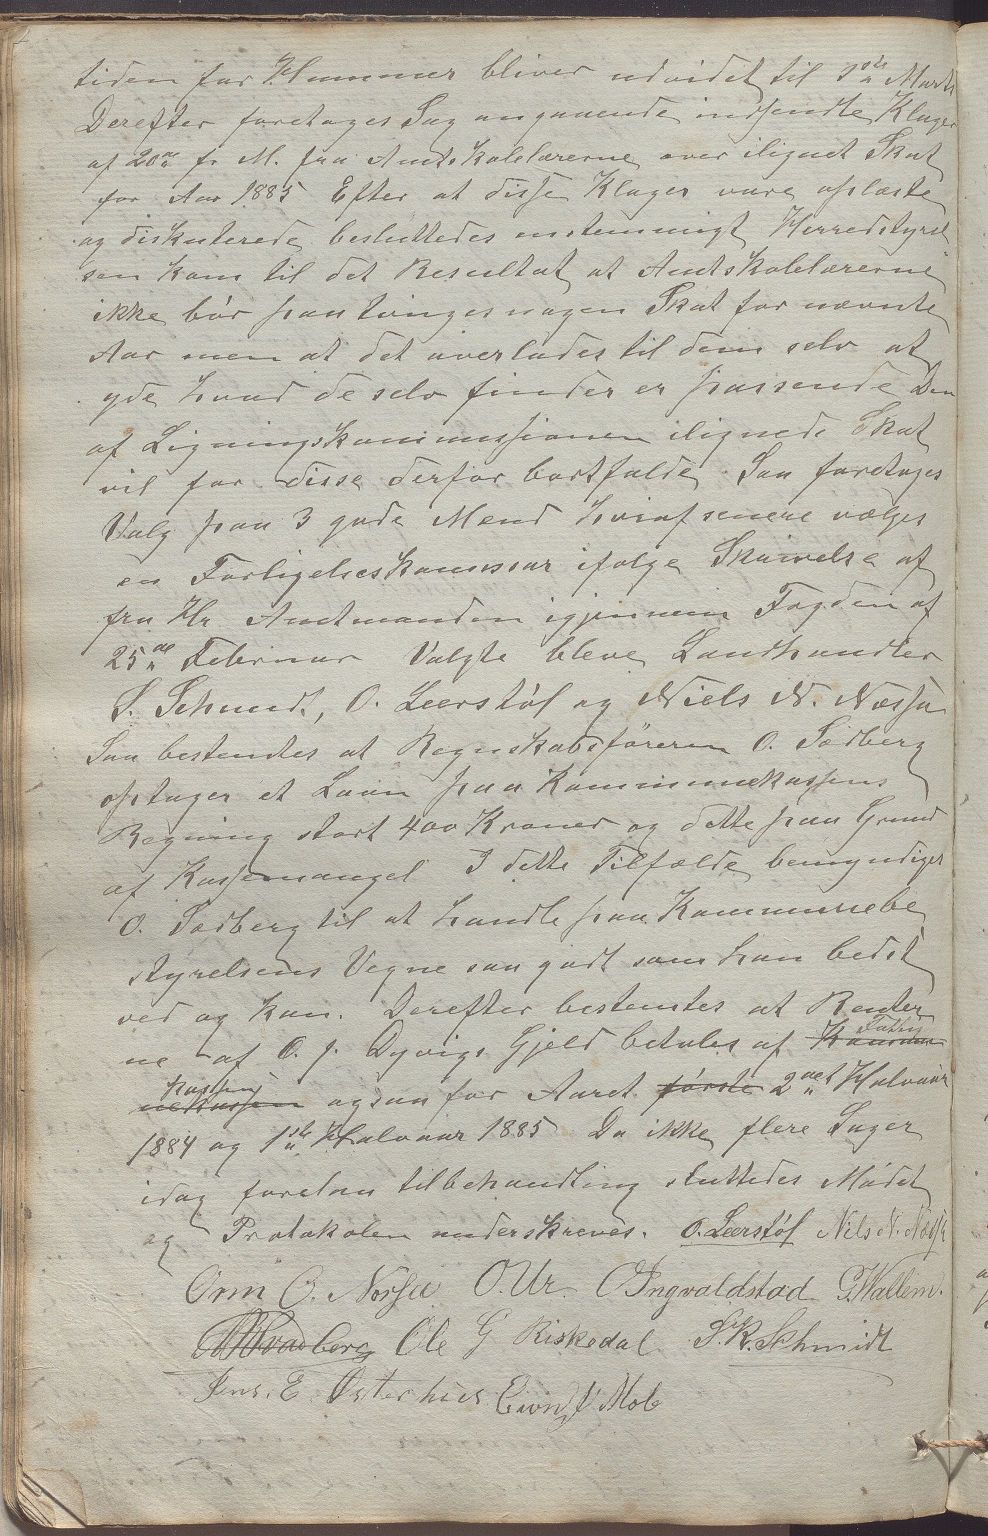 tiden for Hummer bliver udvidet til 1ste Marts
Derefter foretages Sag angaaende indsendte Klager
af 20de f. M. fra Amtskolelærerne over ilignet Skat
for Aar 1885 Efter at disse Klager vare oplæste
og diskuterede besluttedes enstemmigt Herredstyrel
sen kom til det Resultat at Amtskolelærerne
ikke bör paatvinges nogen Skat for nævnte
Aar men at det overlades til dem selv at
yde hvad de selv finder er passende Den
af Ligningskommissionen ilignede Skat
vil for disse derfor bortfalde. Saa foretages
Valg paa 3 gode Mend hvoraf senere vælges
en Forligelseskommisær ifølge Skrivelse af
fra Hr Amtmanden igjennem Fogden af
25de Februar Valgte bleve Landhandler
S. Schmidt, O. Leerstöl og Niels N. Næssa
Saa bestemtes at Regnskabsföreren O. Södberg
optager et Laan paa Kommunekassens
Regning stort 400 Kroner og dette paa Grund
af Kassemangel I dette Tilfælde bemyndiges
O. Södberg til at handle paa Kommunebe
styrelsens Vegne saa godt som han bedst
ved og kan. Derefter bestemtes at Renter
ne af O. J. Dyvigs Gjeld betales af Kommu Fattig
nekassen kassen ogsaa for Aaret förste 2det Halvaar
1884 og 1ste Halvaar 1885 Da ikke flere Sager
idag forelaa tilbehandling sluttedes Mödet
og Protokolen underskreves. O. Leerstöl Nils N. Næssa
Orm O. Norsu O. Ur. O Ingvaldstad G. Hallem.
Ole G Riskedal S. K. Schmidt
Jens. E. Østerhus Eivind Mob